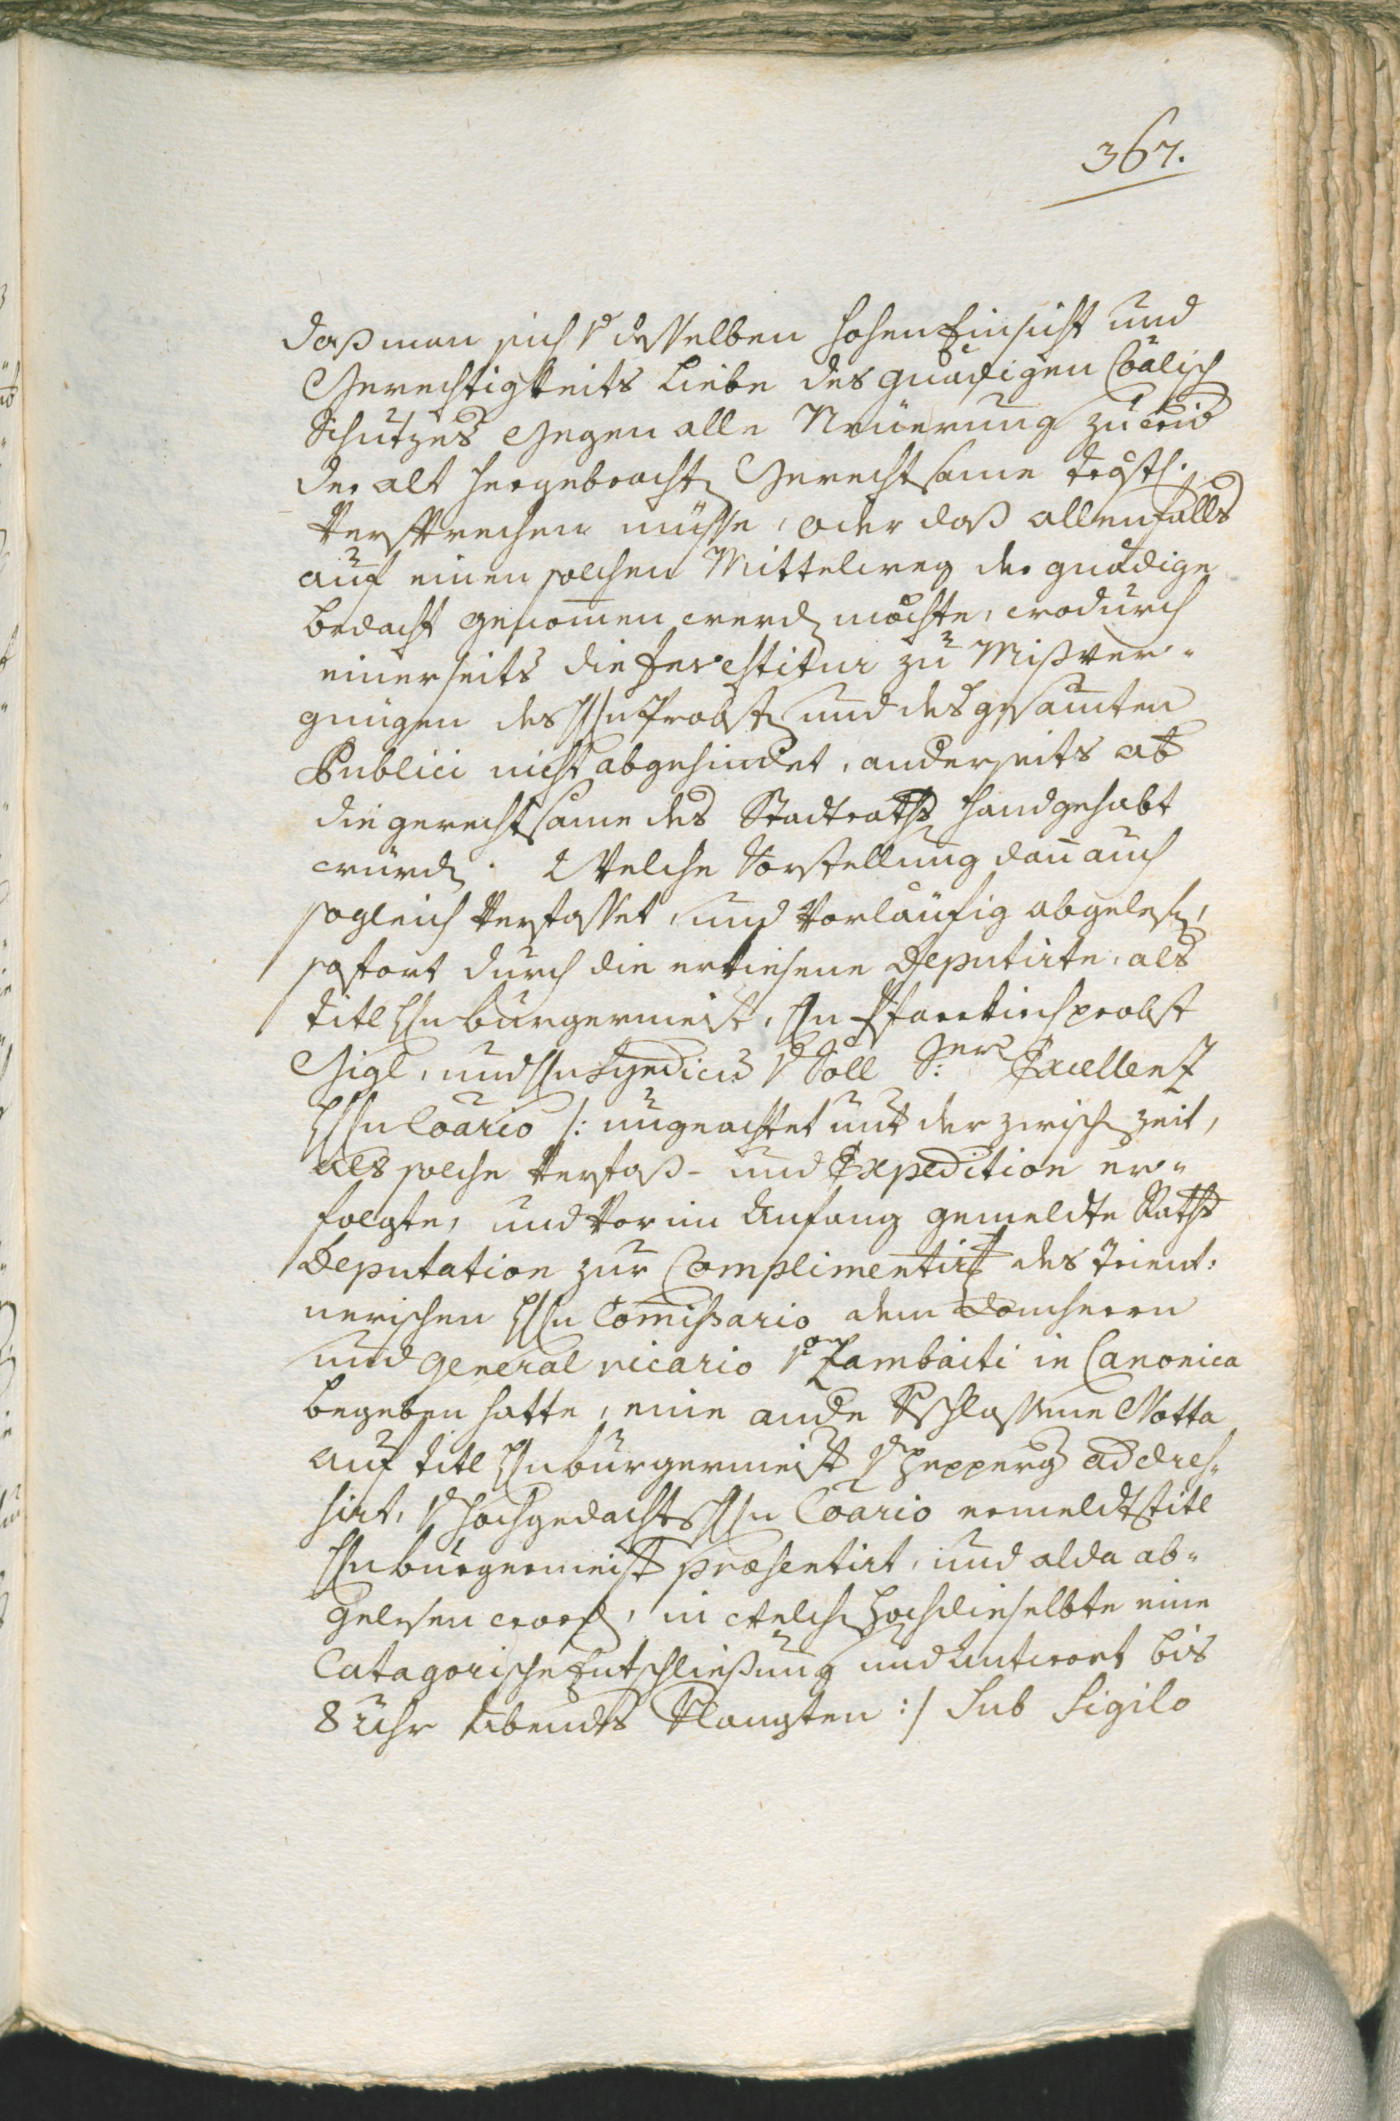 367.
daß man sich v desselben hohen Einsicht und
Gerechtigkeits Liebe des gnädigen Coälisch
Schutzes gegen alle Neüerung zu
der alt hergebracht Gerechtsame tröstl.
Versprechen müsse, oder daß allenfalls
auf einen solchen Mittelweg der gnädige
bedacht genomen werd möchte, wodurch
einerseits die Investitur zu Mißver¬
gnügen des Hn Probst und des gesamten
Publici nicht abgehindet, anderseits ab
die gerechtsame des Stadtraths handgehabt
würd. Welche Vorstellung dan auch
sogleich verfasset, und vorläufig abgelesen,
sofort durch die erkiesene Deputirte, als
titl Hn bürgermeist, Hn Pfarrkirchprobst
Gigl, und Hn Syndicus v Söll S:r Excellenz
Hn Coario /: ungeachtet unt der zwisch zeit,
als solche Verfaß- und Expedition er¬
folgte, und vor im Anfang gemeldte Raths
Deputation zur Complimentirg des trient:
nerischen Hn Comissario dem Domherrn
und General vicario v Zambaiti in Canonica
begeben hatte, eine ande Vschlossene Notta
auf titl Hn bürgermeist v addres¬
sirt, v hochgedachts Hn Coario ermeldt titl
Hn bürgermeist præsentirt, und alda ab¬
gelesen word, in welch hochdieselbte eine
Catagorische Entschließung und Antwort bis
8 Uhr Abends Vlangten :/ Sub Sigilo